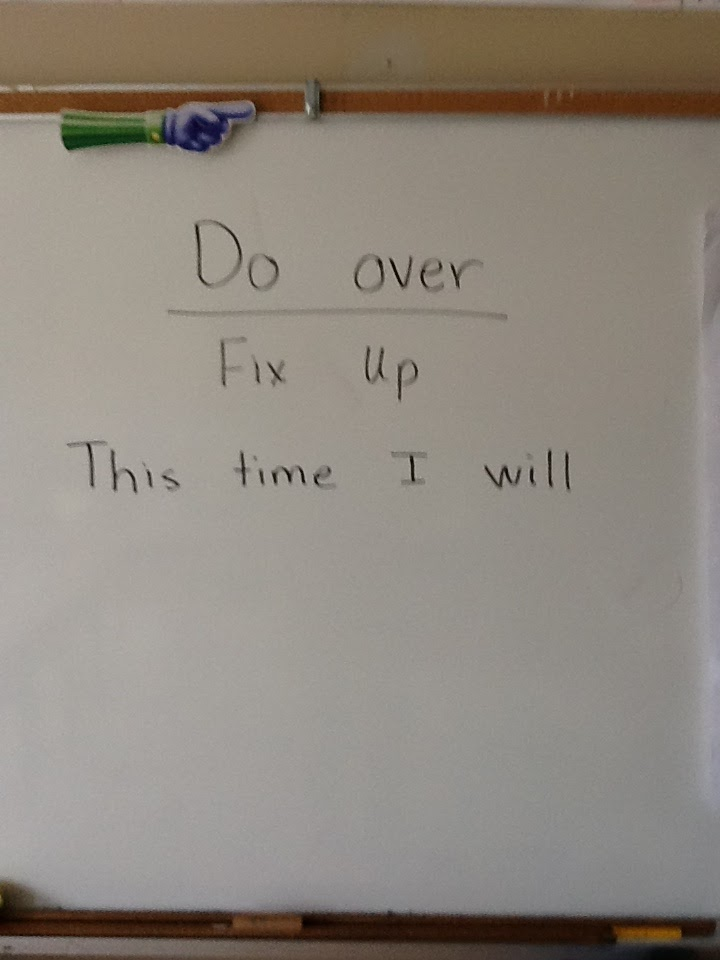 Do over
Fix Up
This time I will